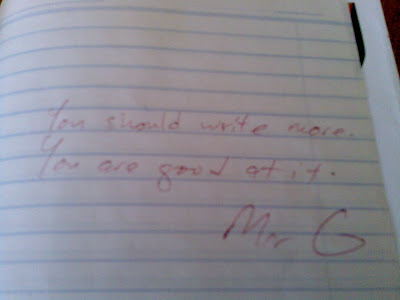 You should write more.
You are good at it.
Mr G